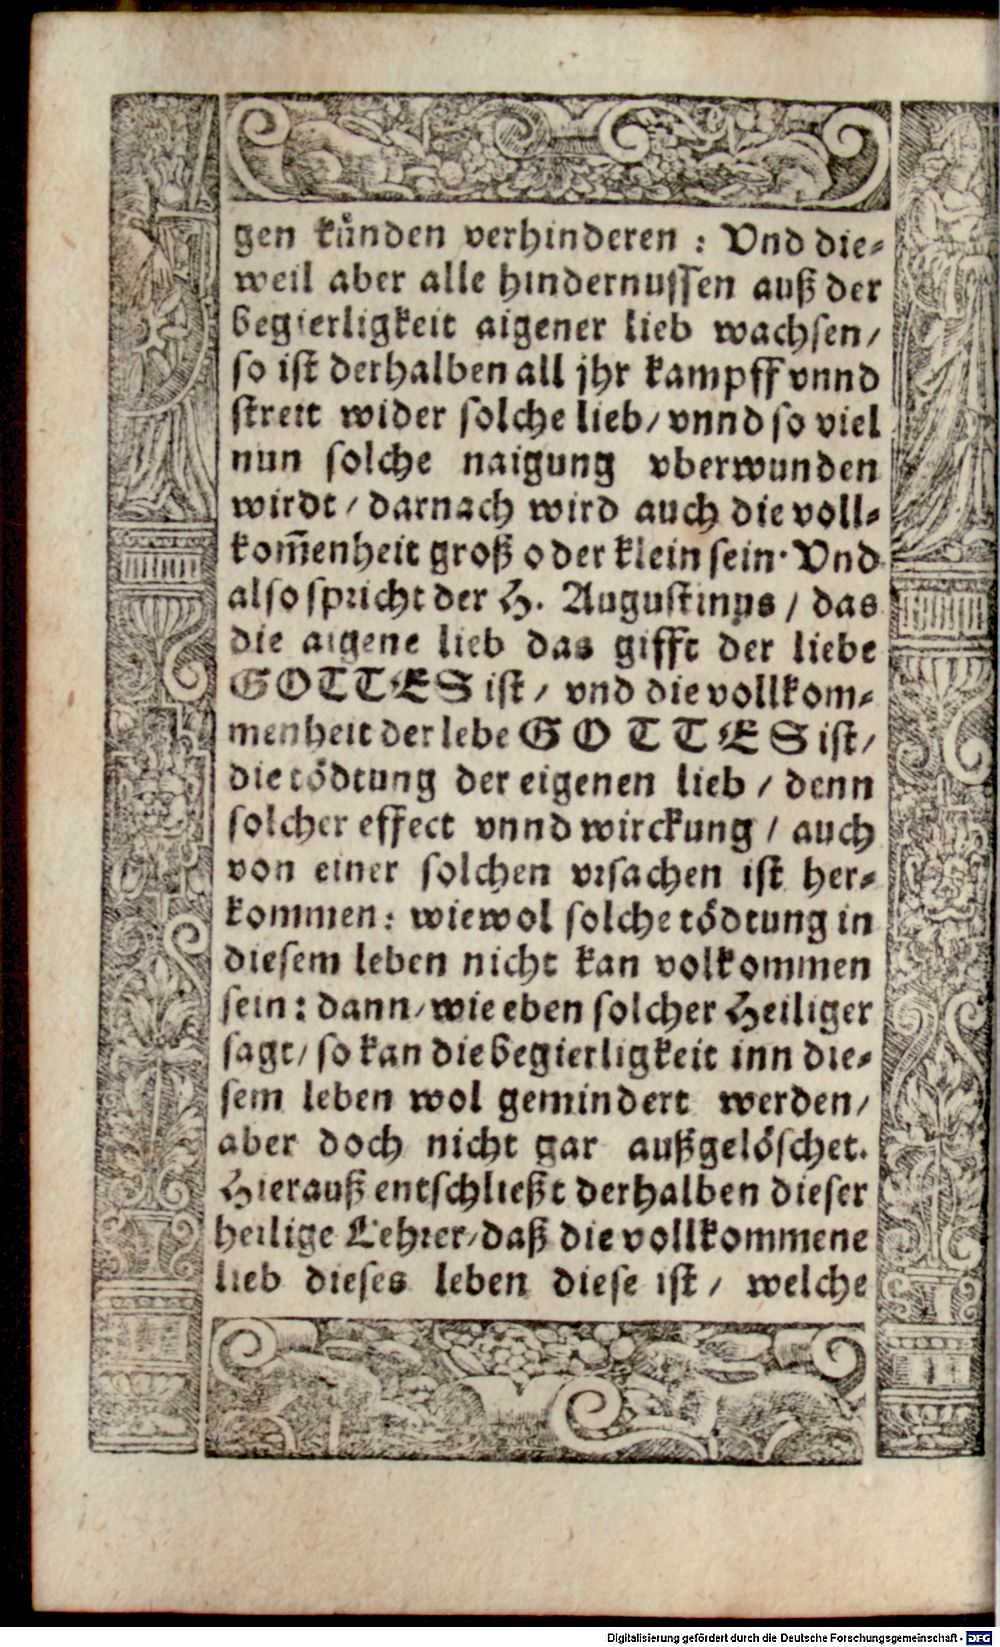 gen kůnden verhinderen : Vnd die⸗
weil aber alle hindernuſſen auß der
begierligkeit aigener lieb wachſen/
ſo iſt derhalben all jhr kampff vnnd
ſtreit wider ſolche lieb/ vnnd ſo viel
nun ſolche naigung vberwunden
wirdt / darnach wird auch die voll⸗
kom̃enheit groß oder klein ſein· Vnd
alſo ſpricht der H. Auguſtinus / das
die aigene lieb das gifft der liebe
GOTTES iſt / vnd die vollkom⸗
menheit der lebe GOTTES iſt/
die tödtung der eigenen lieb / denn
ſolcher effect vnnd wirckung / auch
von einer ſolchen vrſachen iſt her⸗
kommen: wiewol ſolche tödtung in
dieſem leben nicht kan volkommen
ſein: dann/ wie eben ſolcher Heiliger
ſagt/ ſo kan die begierligkeit inn die⸗
ſem leben wol gemindert werden/
aber doch nicht gar außgelöſchet.
Hierauß entſchließt derhalben dieſer
heilige Lehrer/ daß die vollkommene
lieb dieſes leben dieſe iſt / welche
Digitalisierung gefördert durch die Deutsche Forschungsgemeinschaft - DFG